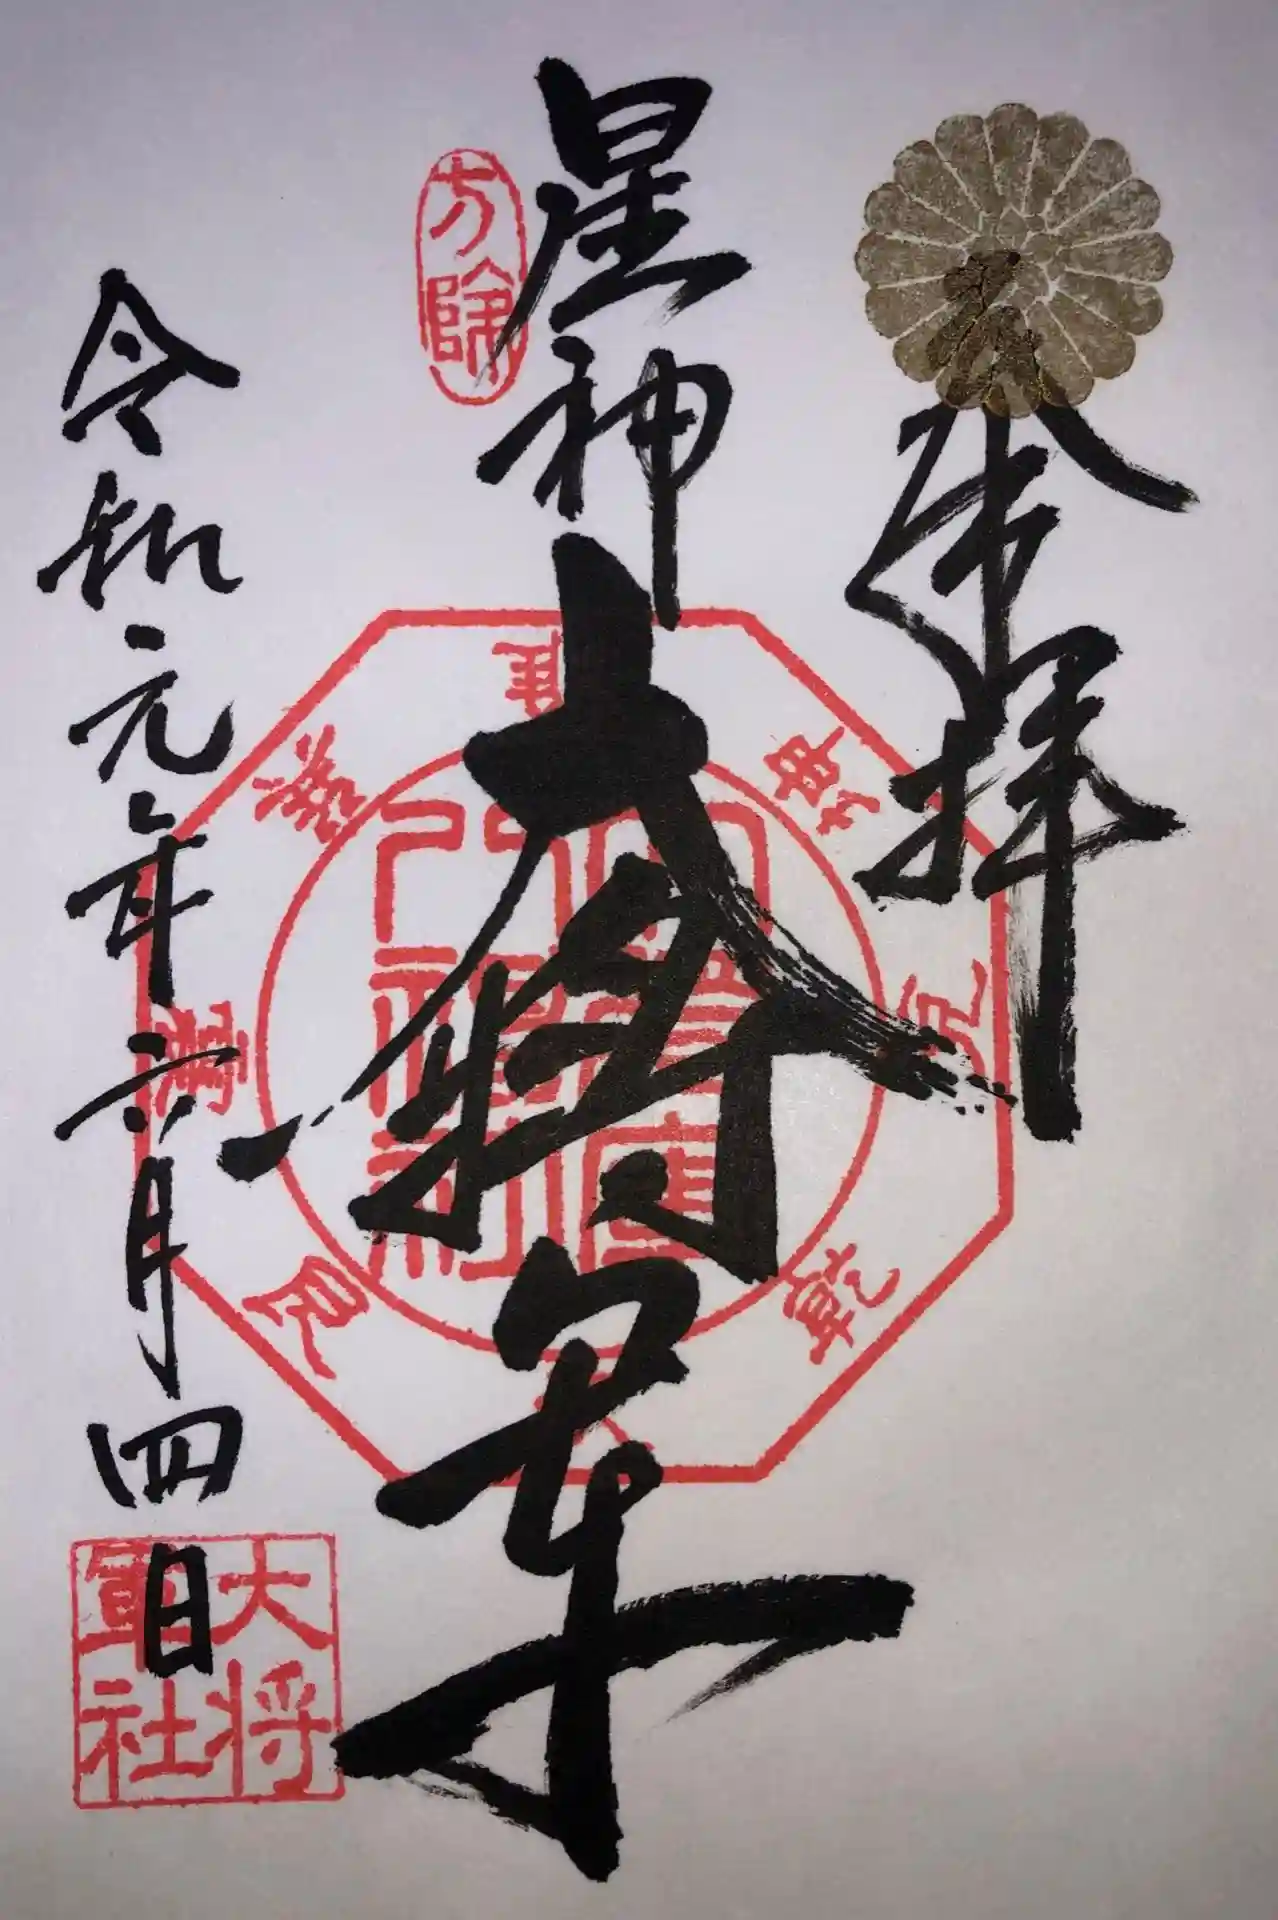 奉拝
星神
大将軍
方除
令和元年六月四日
大将
軍社
乾